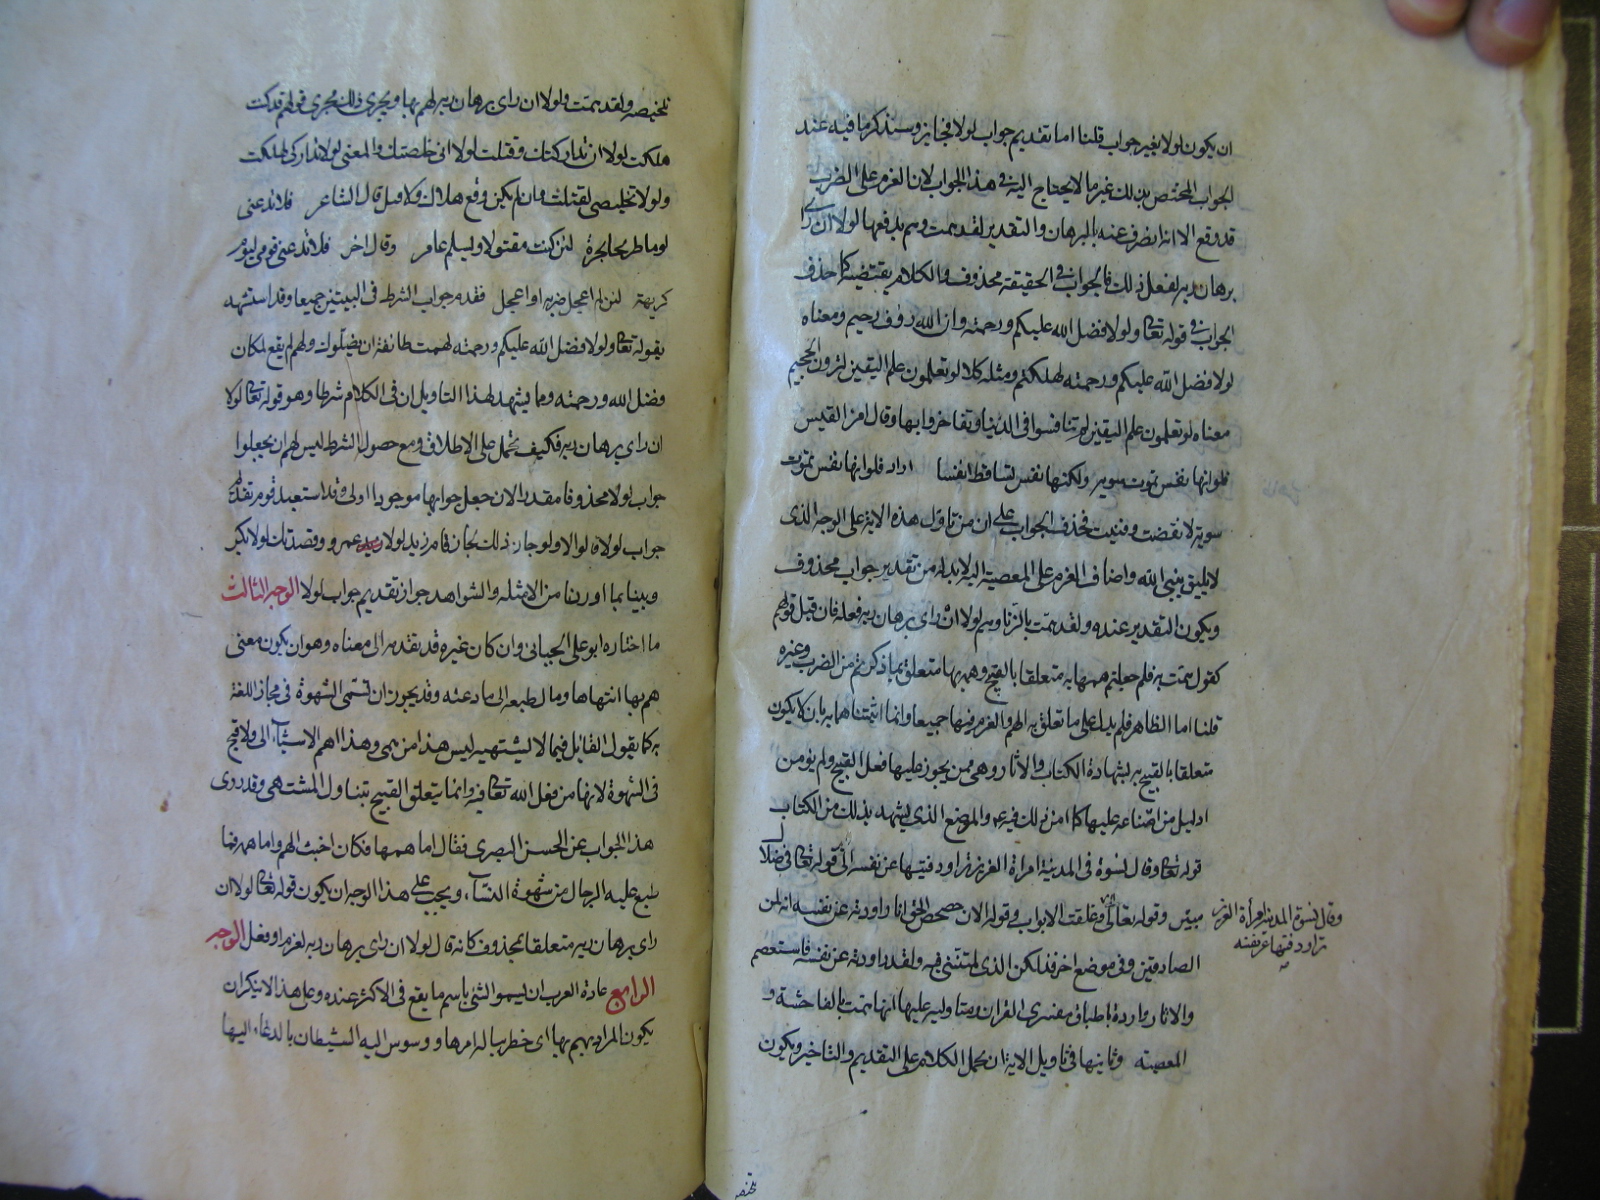 ان يكون لولا بغير جواب قلنا اما تقديم جواب لولا فجايز وسنذكر ما فيه عند
الجواب المختص بذلك غير ما لا يحتاج اليه في هذا الجواب لان العزم على الضرب
قد وقع الا انه انصرف عنه بالبرهان والتقدير لقد همت وهم بدفعها لولا ان راى
برهان ربه لفعل ذلك فالجواب في الحقيقة محذوف والكلام يقتضيه كما حذف
الجواب في قوله تعالى ولولا فضل الله عليكم ورحمته وان الله رؤف رحيم ومعناه
لولا فضل الله عليكم ورحمته لهلكتم ومثله كلا لو تعلمون علم اليقين لترون الجحيم
معناه لو تعلمون علم اليقين لم تتنافسوا في الدنيا وتفاخروا بها وقال امرء القيس
فلو انها نفس تموت سوية ولكنها نفس تساقط انفسا اراد فلو انها نفس تموت
سوية لانقضت وفنيت فحذف الجواب على ان من تاول هذه الاية على الوجه الذى
لا يليق بنبي الله واضاف العزم على المعصية اليه لا بد له من تقدير جواب محذوف
ويكون التقدير عنده ولقد همت بالزنا وهم لولا ان راى برهان ربه فعله فان قيل قولهم
كقوله همت به فلم جعلتم همها به متعلقا بالقبيح وهمه بها متعلق بما ذكرتم من الضرب وغيره
قلنا اما الظاهر فلم يدل على ما تعلق به الهم والعزم فيها جميعا وانما اثبتنا همها به بان لا يكون
متعلقا بالقبيح به لشهادة الكتاب والاثار وهي ممن يجوز عليها فعل القبيح ولم يؤمن
ادليل من امتناعه عليها كما امن ذلك فيه عم والموضع الذى يشهد بذلك من الكتاب
قوله تعالى وقال نسوة في المدينة امراة العزيز تراود فتيها عن نفسه الى قوله تعالى في ضلال
مبين وقوله تعالى وغلقت الابواب وقوله الان حصحص الحق انا راودته عن نفسه انه لمن
وقال نسوة في المدينة امرأة العزيز
تراود فتيها عن نفسه
الصادقين وفي موضع اخر فذلكن الذى لمتننى فيه ولقد راودته عن نفسه فاستعصم
والاثار واردة باطباق مفسرى القران ومتاوليه عليها انها همت بالفاحشة و
المعصية وثانيها في تاويل الاية ان يحمل الكلام على التقديم والتاخير ويكون
تلخيصه
تلخيصه ولقد همت ولولا ان راى برهان ربه لهم بها ويجرى ذلك مجرى قولهم قد كنت
هلكت لولا ان تداركتك وقتلت لولا انى خلصتك والمعنى لولا تداركى لهلكت
ولولا تخليصى لقتلت وان لم يكن وقع هلاك ولا قتل قال الشاعر فلا تدعنى
لئن كنت مقتولا وليسلم عامر وقال اخر فلا تدعنى قومى ليوم
كريهة لئن لم اعجل ضربه او اعجل فقدم جواب الشرط في البيتين جميعا وقد استشهد
بقوله تعالى ولولا فضل الله عليكم ورحمته لهمت طائفة ان يضلوك ولهم لم يقع لمكان
فضل الله ورحمته ومما يشهد لهذا التاويل ان في الكلام شرطا وهو قوله تعالى لولا
ان راى برهان ربه فكيف تحمل على الاطلاق ومع حصول الشرط ليس لهم ان يجعلوا
جواب لولا محذوفا مقدرا لان جعل جوابها موجودا اولى وقد استبعد قوم تقديم
جواب لولا قالوا ولو جاز ذلك لجاز قام زيد لولا عمرو وقصدتك لولا بكر
وبينا بما اوردنا من الامثلة والشواهد جواز تقديم جواب لولا الوجه الثالث
ما اختاره ابو على الجبائى وان كان غيره قد تقدمه الى معناه وهو ان يكون معنى
هم بها اشتهاها ومال طبعه الى ما دعته وقد يجوز ان تسمى الشهوة في مجاز اللغة
به كما يقول القائل فيما لا يشتهيه ليس هذا من همى وهذا اهم الاشياء الى ولا قبح
في الشهوة لانها من فعل الله تعالى فيه وانما يتعلق القبيح بتناول المشتهى وقد روى
هذا الجواب عن الحسن البصرى فقال اما همها فكان اخبث الهم واما همه فما
طبع عليه الرجال من شهوة النساء ويجب على هذا الوجه ان يكون قوله تعالى لولا ان
راى برهان ربه متعلقا بمحذوف كانه قال لولا ان راى برهان ربه لعزم او فعل الوجه
الرابع عادة العرب ان يسموا الشئ باسم ما يقع في الاكثر عنده وعلى هذا لا ينكر ان
يكون المراد بهم بها اى خطر بباله امرها ووسوس اليه الشيطان بالدعاء اليها